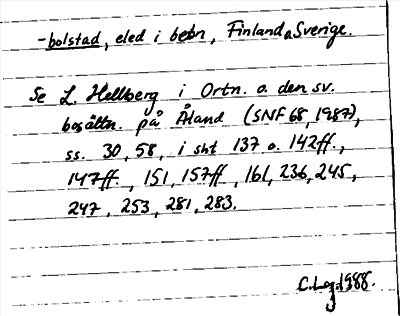 -bolstad, eled i bebn, Finland o Sverige.
Se L. Hellberg i Ortn. o. den sv.
bosättn. på Åland (SNF 68, 1987),
ss. 30, 58, i sht 137 o. 142ff.,
147ff., 151, 157ff, 161, 236, 245,
247, 253, 281, 283.
1988.